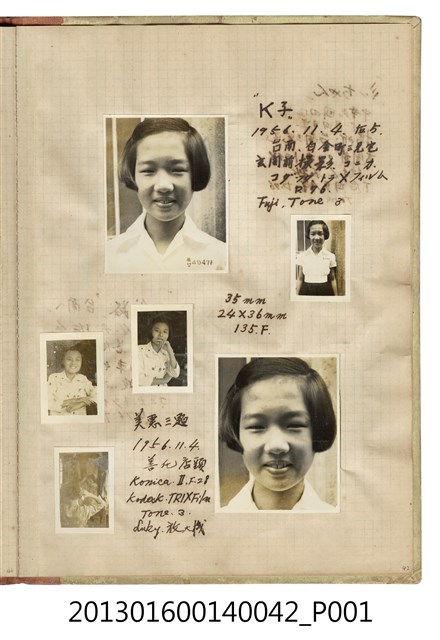 "K子"
1956. 11. 4. 午5.
台南.白金町二見宅
玄関前撮影.コニカ.
コダック.トライXフィルム
R.76.
Fuji. Tone 3
35mm
24×36mm
135.F.
美惠三題
1956.11.4.
Konica.II.F2.8
Kodak.TRIXFilm
Tone.3.
Lucky.放大機
201301600140042_P001